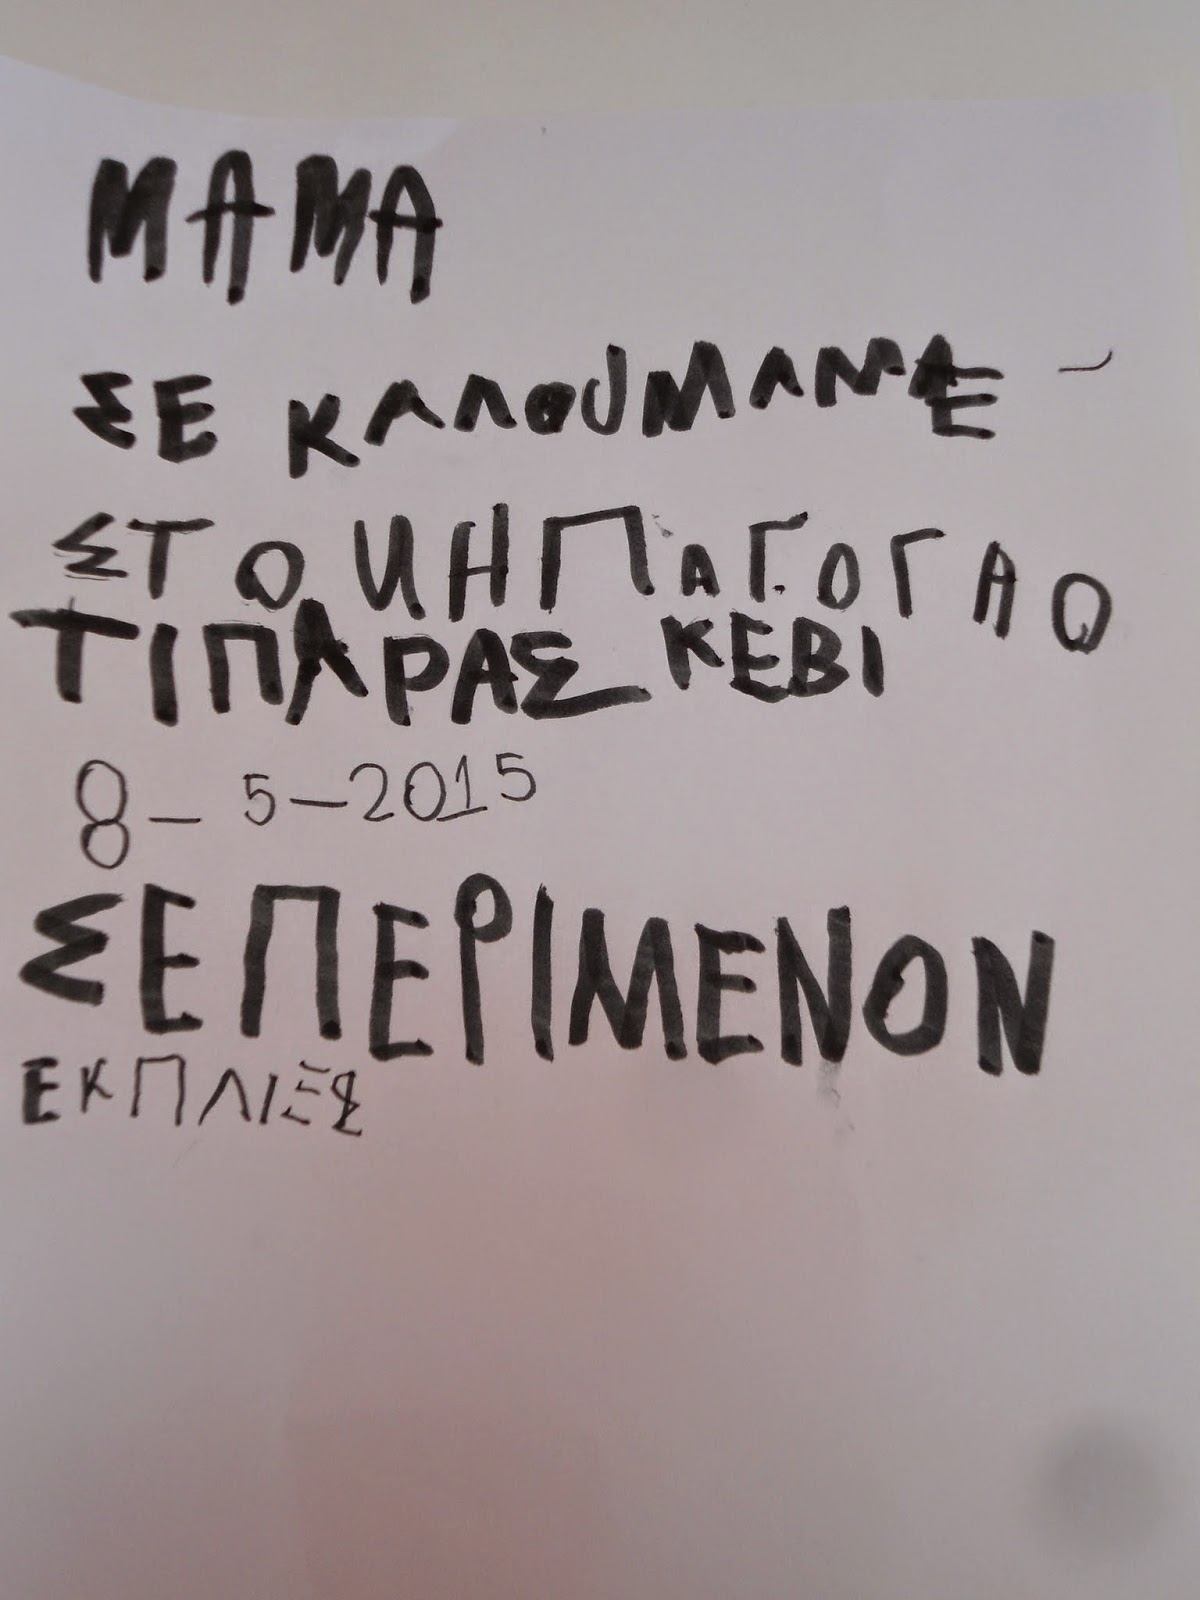 ΜΑΜΑ
ΣΕ ΚΑΛΟUΜΑΜΑΕ
ΣΤΟ ΚΗΠΑΓΟΓΑΟ
ΤΙΠΑΡΑΣΚΕΒΙ
8-5-2015
ΣΕΠΕΡΙΜΕΝΟΝ
ΕΚΠΛΙΕΣ